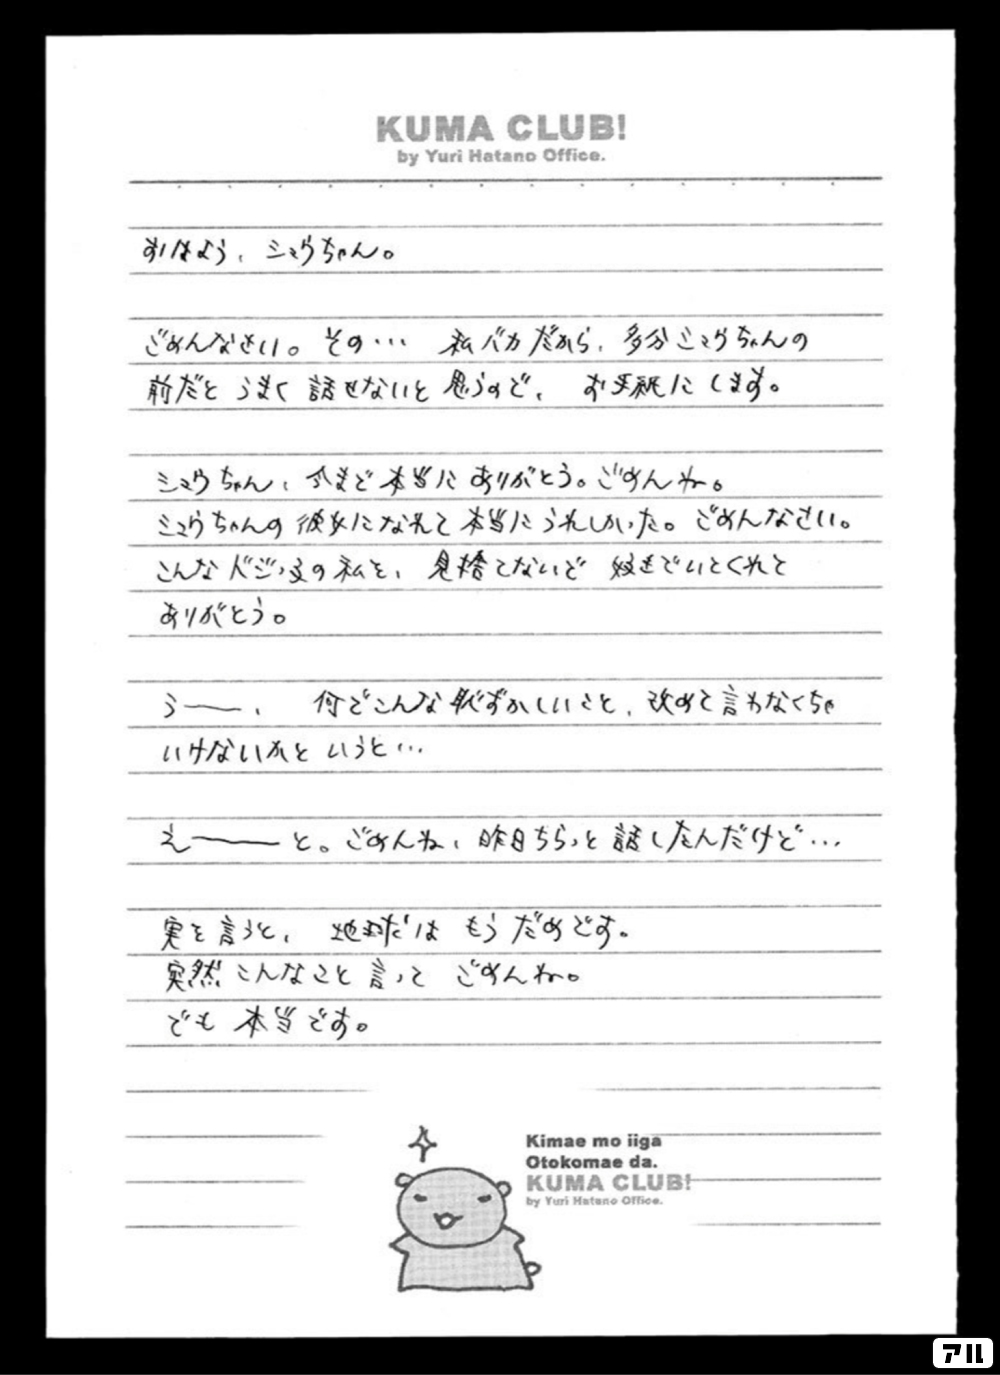 KUMA CLUB!
by Yuri Hatano Office.
おはよう、シュウちゃん。
ごめんなさい。その… 私バカだから、多分シュウちゃんの
前だと うまく 話せないと 思うので、 お手紙に します。
シュウちゃん、今まで 本当に ありがとう。ごめんね。
シュウちゃんの 彼女になれて 本当に うれしかった。ごめんなさい。
こんな ドジッ娘の 私を、 見捨てないで 好きでいてくれて
ありがとう。
うーー、 何でこんな 恥ずかしいこと、改めて 言わなくちゃ
いけないかと いうと…
えーーーと。ごめんね、昨日ちらっと 話したんだけど…
実を 言うと、 地球は もう だめです。
突然 こんなこと 言って ごめんね。
でも 本当です。
Kimae mo iiga
Otokomae da.
KUMA CLUB!
by Yuri Hatano Office.
アル